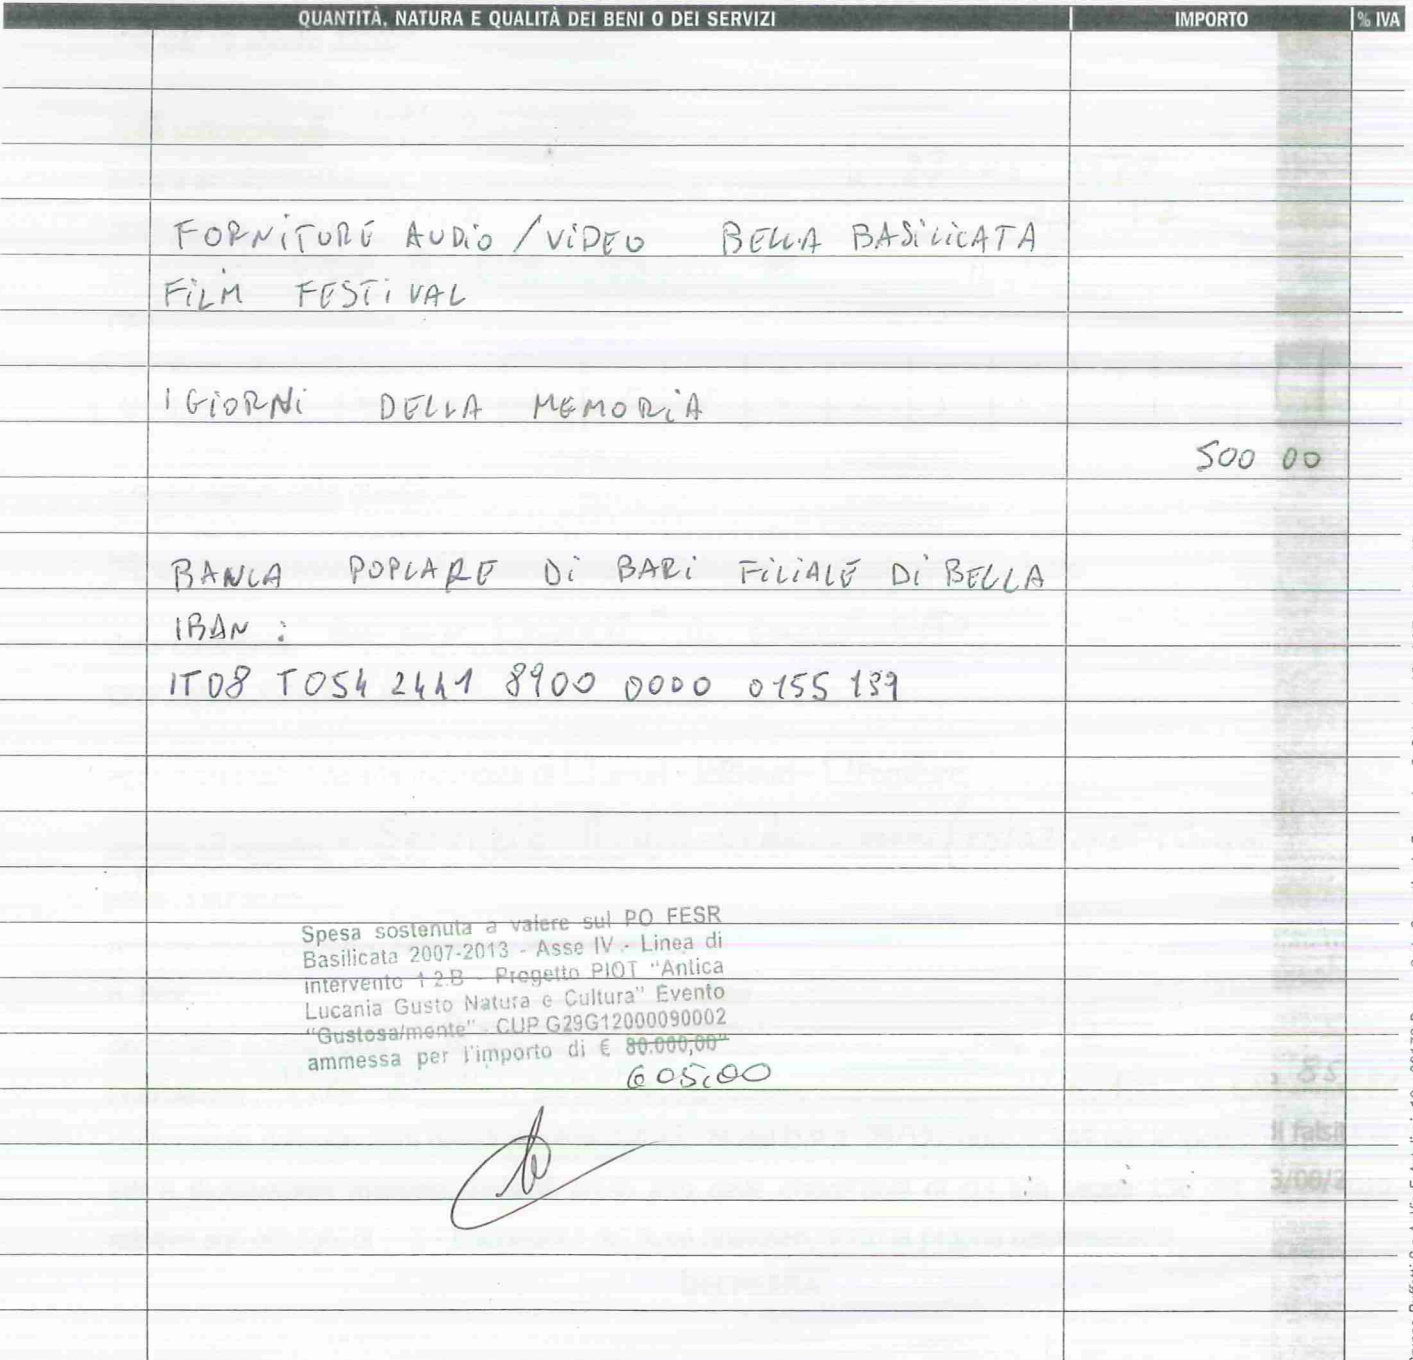 QUANTITÀ, NATURA E QUALITÀ DEI BENI O DEI SERVIZI IMPORTO % IVA
FORNITURE AUDIO / VIDEO BELLA BASILICATA
FILM FESTIVAL
I GIORNI DELLA MEMORIA
500 00
BANCA POPLARE DI BARI FILIALE DI BELLA
IBAN :
IT08 T054 2441 8900 0000 0155 139
Spesa sostenuta a valere sul PO FESR
Basilicata 2007-2013 - Asse IV - Linea di
intervento 1.2.B - Progetto PIOT "Antica
Lucania Gusto Natura e Cultura" Evento
"Gustosa/mente" - CUP G29G12000090002
ammessa per l'importo di € 80.000,00"
605,00